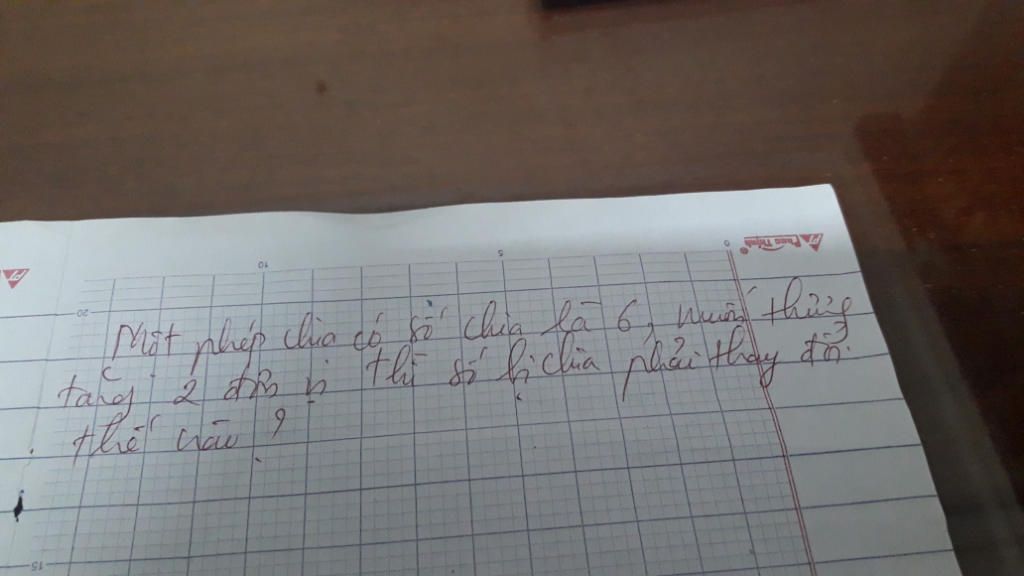 Một phép chia có số chia là 6, muốn thương
tăng 2 đơn vị thì số bị chia phải thay đổi
thế nào ?
Phan Thịnh
0
5
10
20
15